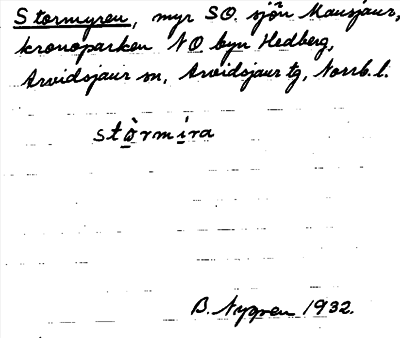 Stormyren, myr SO. sjön Mausjaur,
kronoparken NO byn Hedberg,
Arvidsjaur sn, Arvidsjaur tg, Norrb. l.
stòrmíra
B. Nygren 1932.